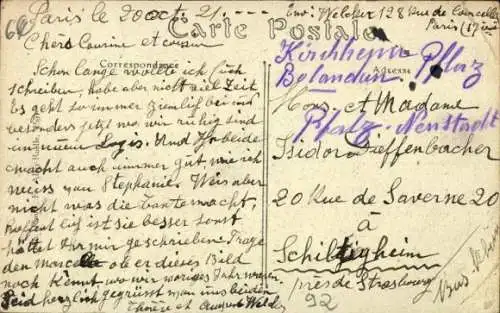 Paris le 20 oct. 21.
Env: Welcker 128 Rue de Courcelles
Paris (17
Carte Postale
Chère Cousine et cousin
Correspondance
Adresse
Schon lange wollte ich Euch
schreiben, habe aber nicht viel Zeit
Es geht so immer ziemlich bei uns
besonders jetzt wo wir ruhig sind
in neuem Logis. Und Ihr beide
macht auch immer gut wie ich
weiss von Stephanie. Weis aber
nicht was die Tante macht,
hoffentlich ist sie besser sonst
hättet Ihr mir geschrieben. Frage
den Marcel ob er dieses Bild
noch kennt wo wir voriges Jahr waren.
Seid herzlich gegrüsst von uns beiden
et August Welcker
Kirchheim Pfalz
Bolanden
Mons. et Madame
Pfalz-Neustadt
Isidor Daffenbacher
20 Rue de Saverne 20
à
Schiltigheim
près de Strasbourg
Bas-Rhin
92